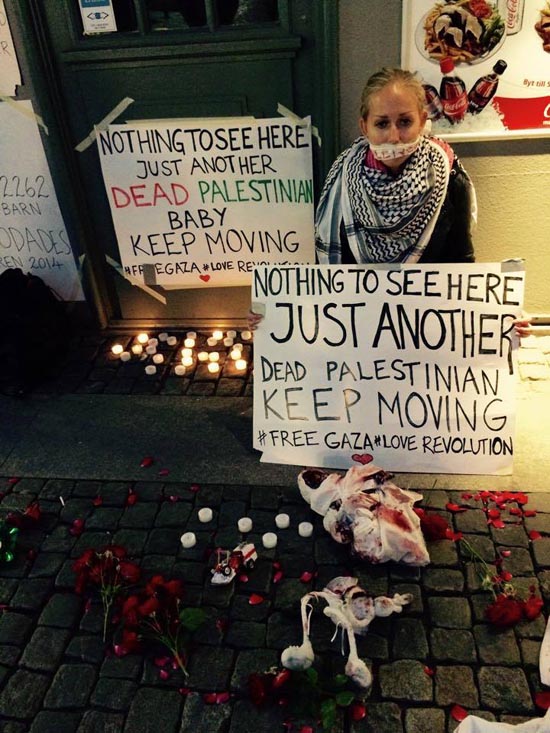 2262
BARN
DÖDADES
REN 2014
NOTHING TO SEE HERE
JUST ANOTHER
DEAD PALESTINIAN
BABY
KEEP MOVING
#FREEGAZA #LOVE REVOLUTION
NOTHING TO SEE HERE
JUST ANOTHER
DEAD PALESTINIAN
KEEP MOVING
#FREE GAZA #LOVE REVOLUTION
Byt till s